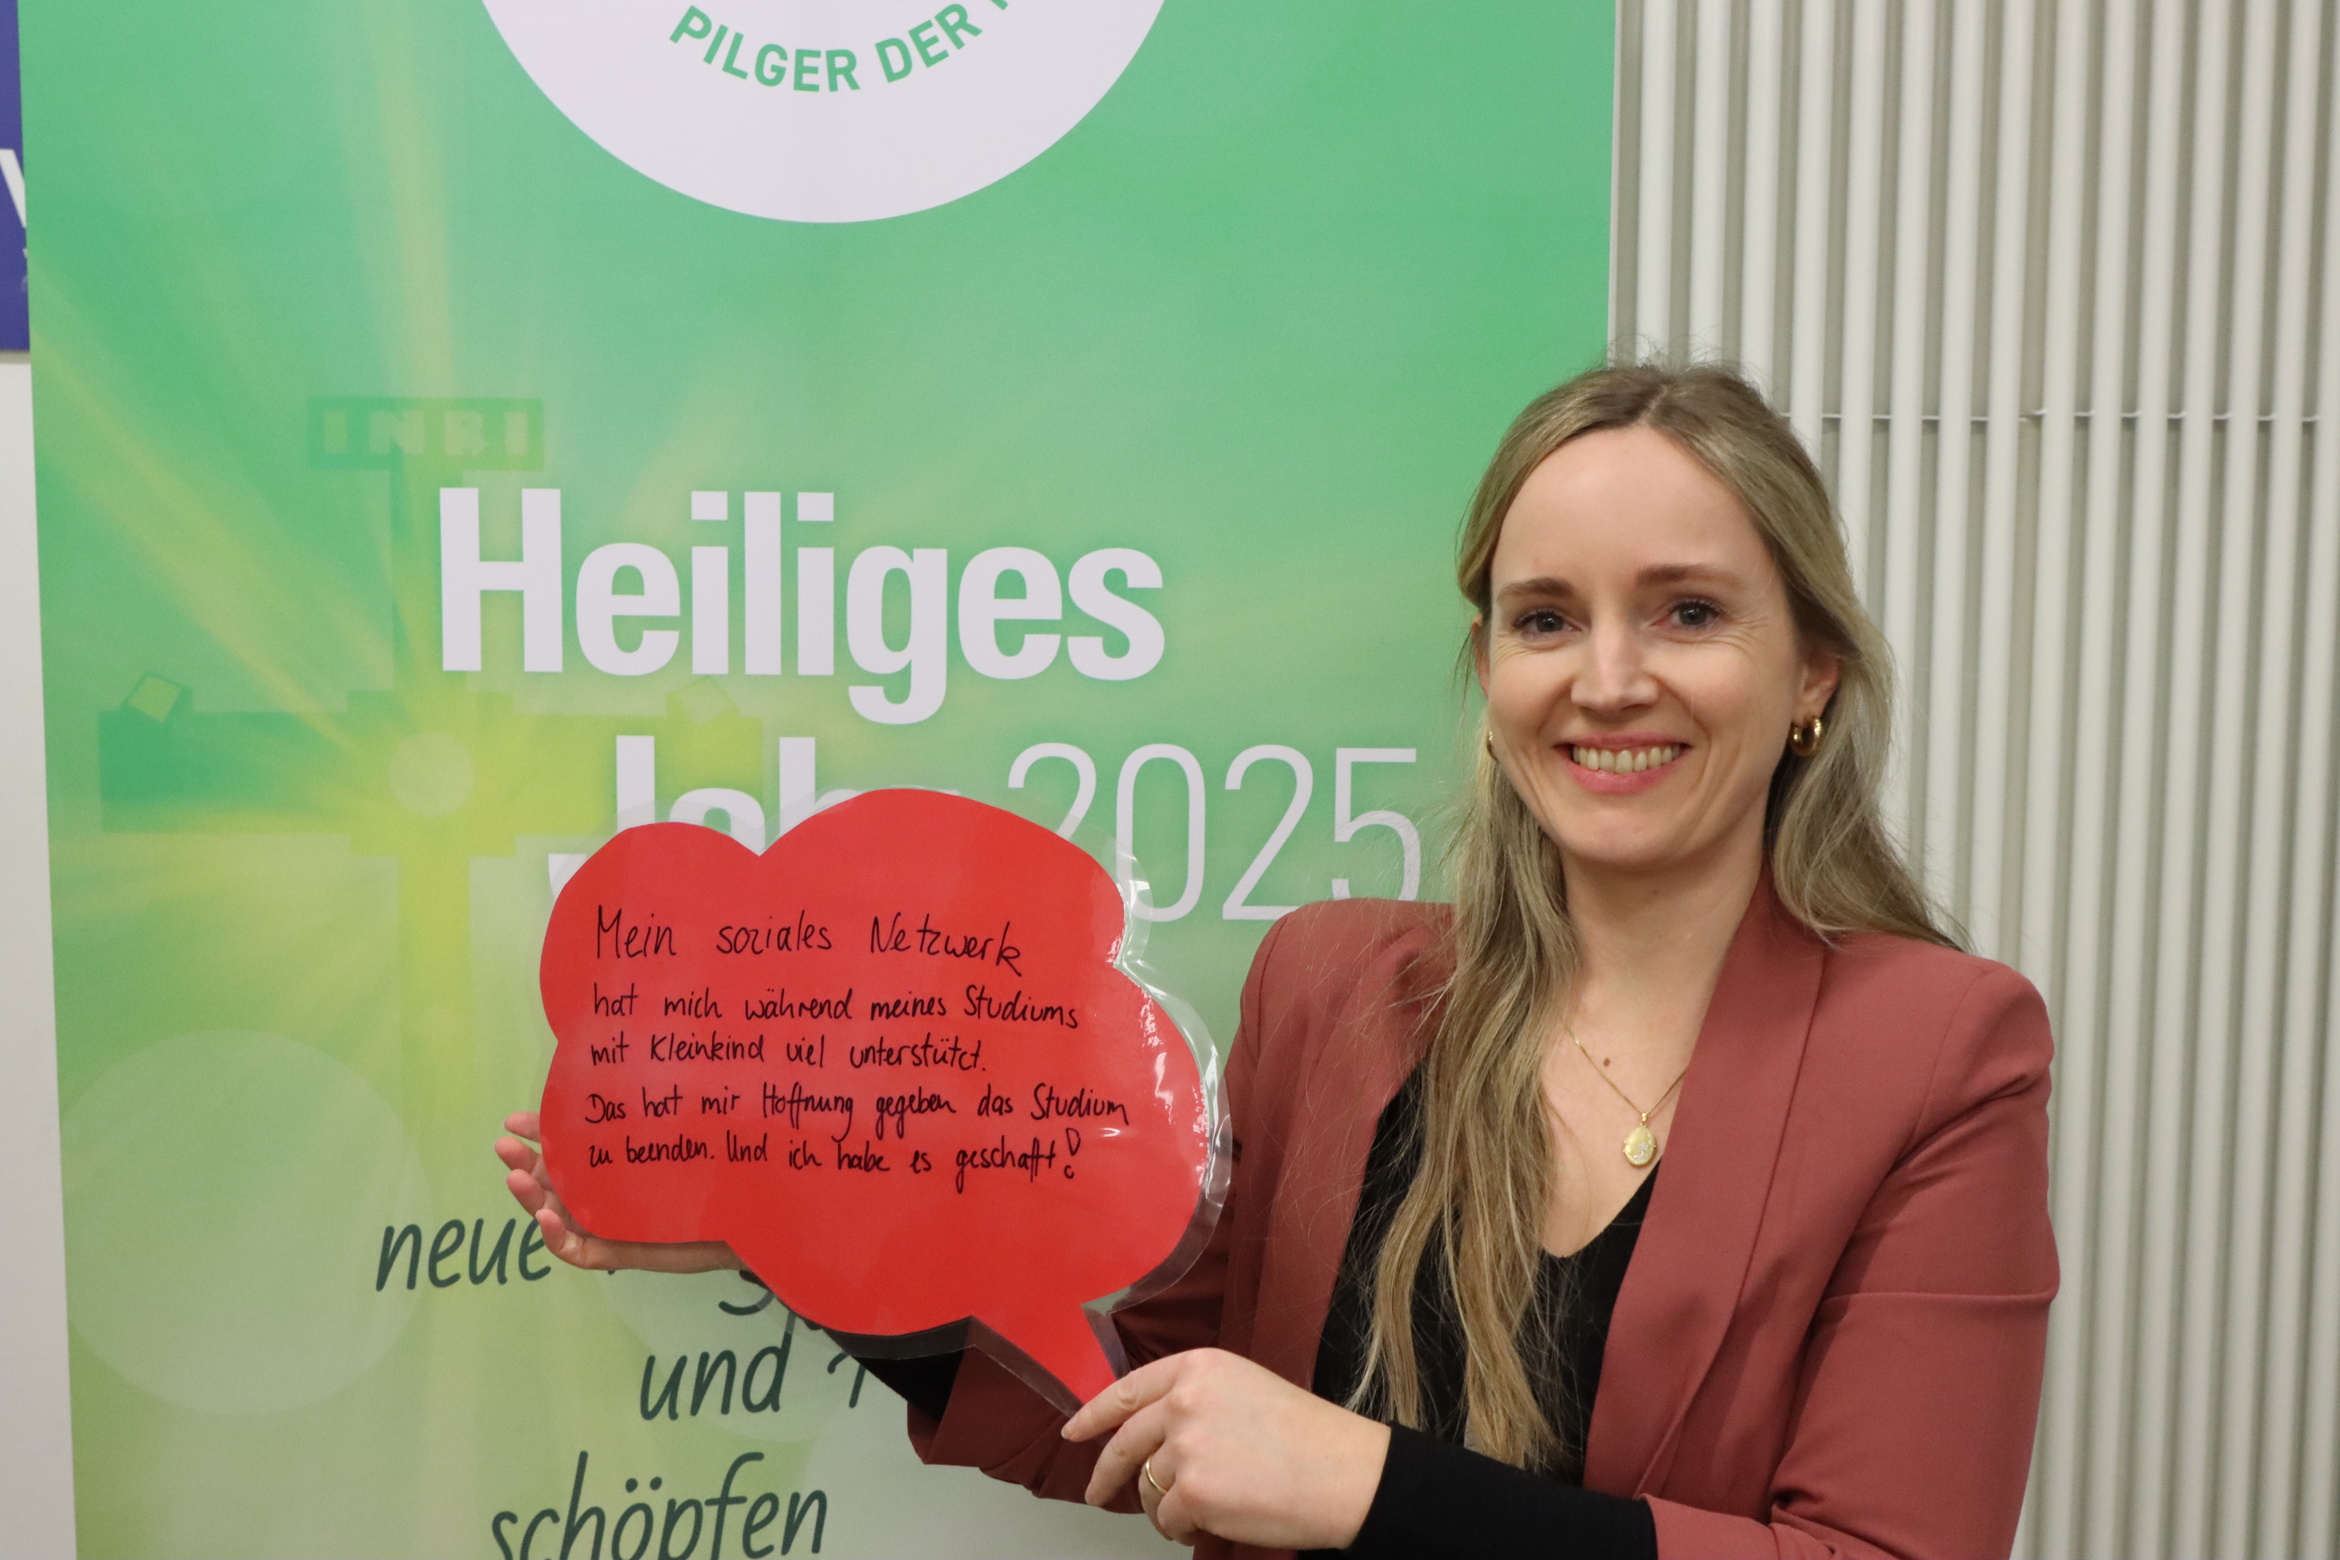 PILGER DER
INRI
Heiliges
Jahr 2025
Mein soziales Netzwerk
hat mich während meines Studiums
mit Kleinkind viel unterstützt.
Das hat mir Hoffnung gegeben das Studium
zu beenden. Und ich habe es geschafft!
neue
und
schöpfen